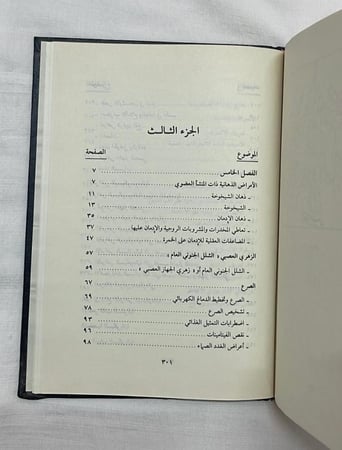 الجزء الثالث
الموضوع الصفحة
الفصل الخامس ٧
الأمراض الذهانية ذات المنشأ العضوي ٧
- ذهان الشيخوخة ١١
- الشيخوخة ١٣
- ذهان الإدمان ٣٥
- تعاطي المخدرات والمشروبات الروحية والإدمان عليها ٣٧
- المضاعفات العقلية للإدمان على الخمرة ٤٧
الزهري العصبي «الشلل الجنوني العام» ٥٧
- الشلل الجنوني العام أو« زهري الجهاز العصبي » ٥٩
الصرع ٦٧
- الصرع وتخطيط الدماغ الكهربائي ٦٩
- تشخيص الصرع ٧٨
- اضطرابات التمثيل الغذائي ٩٣
- نقص الفيتامينات ٩٦
- أعراض الغدد الصماء ٩٨
٣٠١